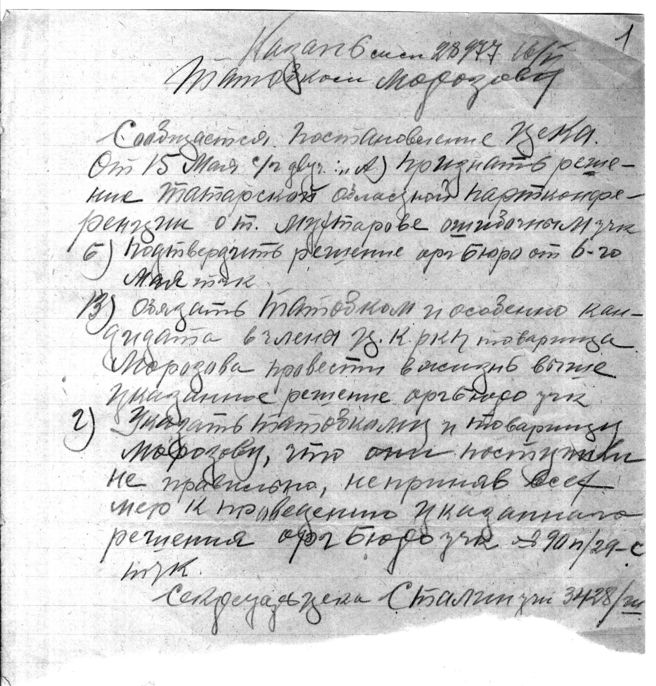 1
Казань 6 28977
Татобком Морозову
Сообщается постановление Цека.
От 15 Мая двтч : „А) признать реше-
ние Татарской областной партконфе-
ренции о т. Мухтарове ошибочным тчк
Б) Подтвердить решение оргбюро от 6-го
Мая тчк
В) Обязать Татобком и особенно кан-
дидата в члена Ц.К РКП товарища
Морозова провести в жизнь выше
указанное решение оргбюро тчк
г) Указать Татобкому и товарищу
Морозову, что они поступили
не правильно, неприняв всех
мер к проведению указанного
решения оргбюро тчк № 90 п/29-с
тчк.
Секретарь цека Сталин 3428/ш